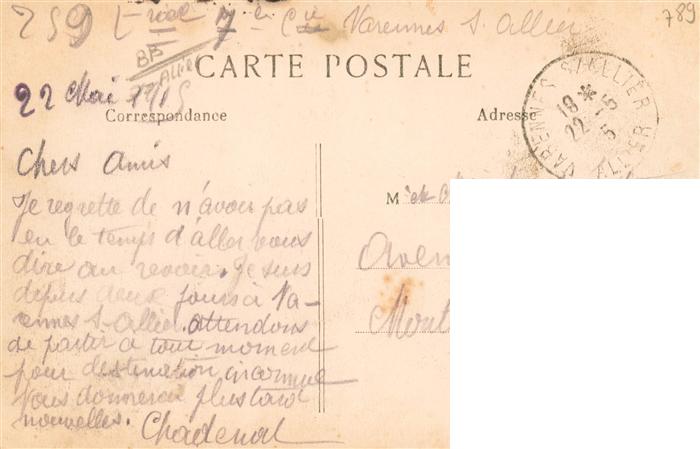 259 7e Cie Varennes s. Allier
789
CARTE POSTALE
22 Mai 1915
Correspondance
Adresse
VARENNES S/ALLIER
18 * 22 - 5 15
ALLIER
Chers Amis
Je regrette de n'avoir pas
eu le temps d'aller vous
dire au revoir. Je suis
depuis deux jours à Va-
rennes s-Allier. attendons
de partir à tout moment
pour destination inconnue
Vous donnerai plus tard
nouvelles.
Chadenat
M et
Aven
Mont